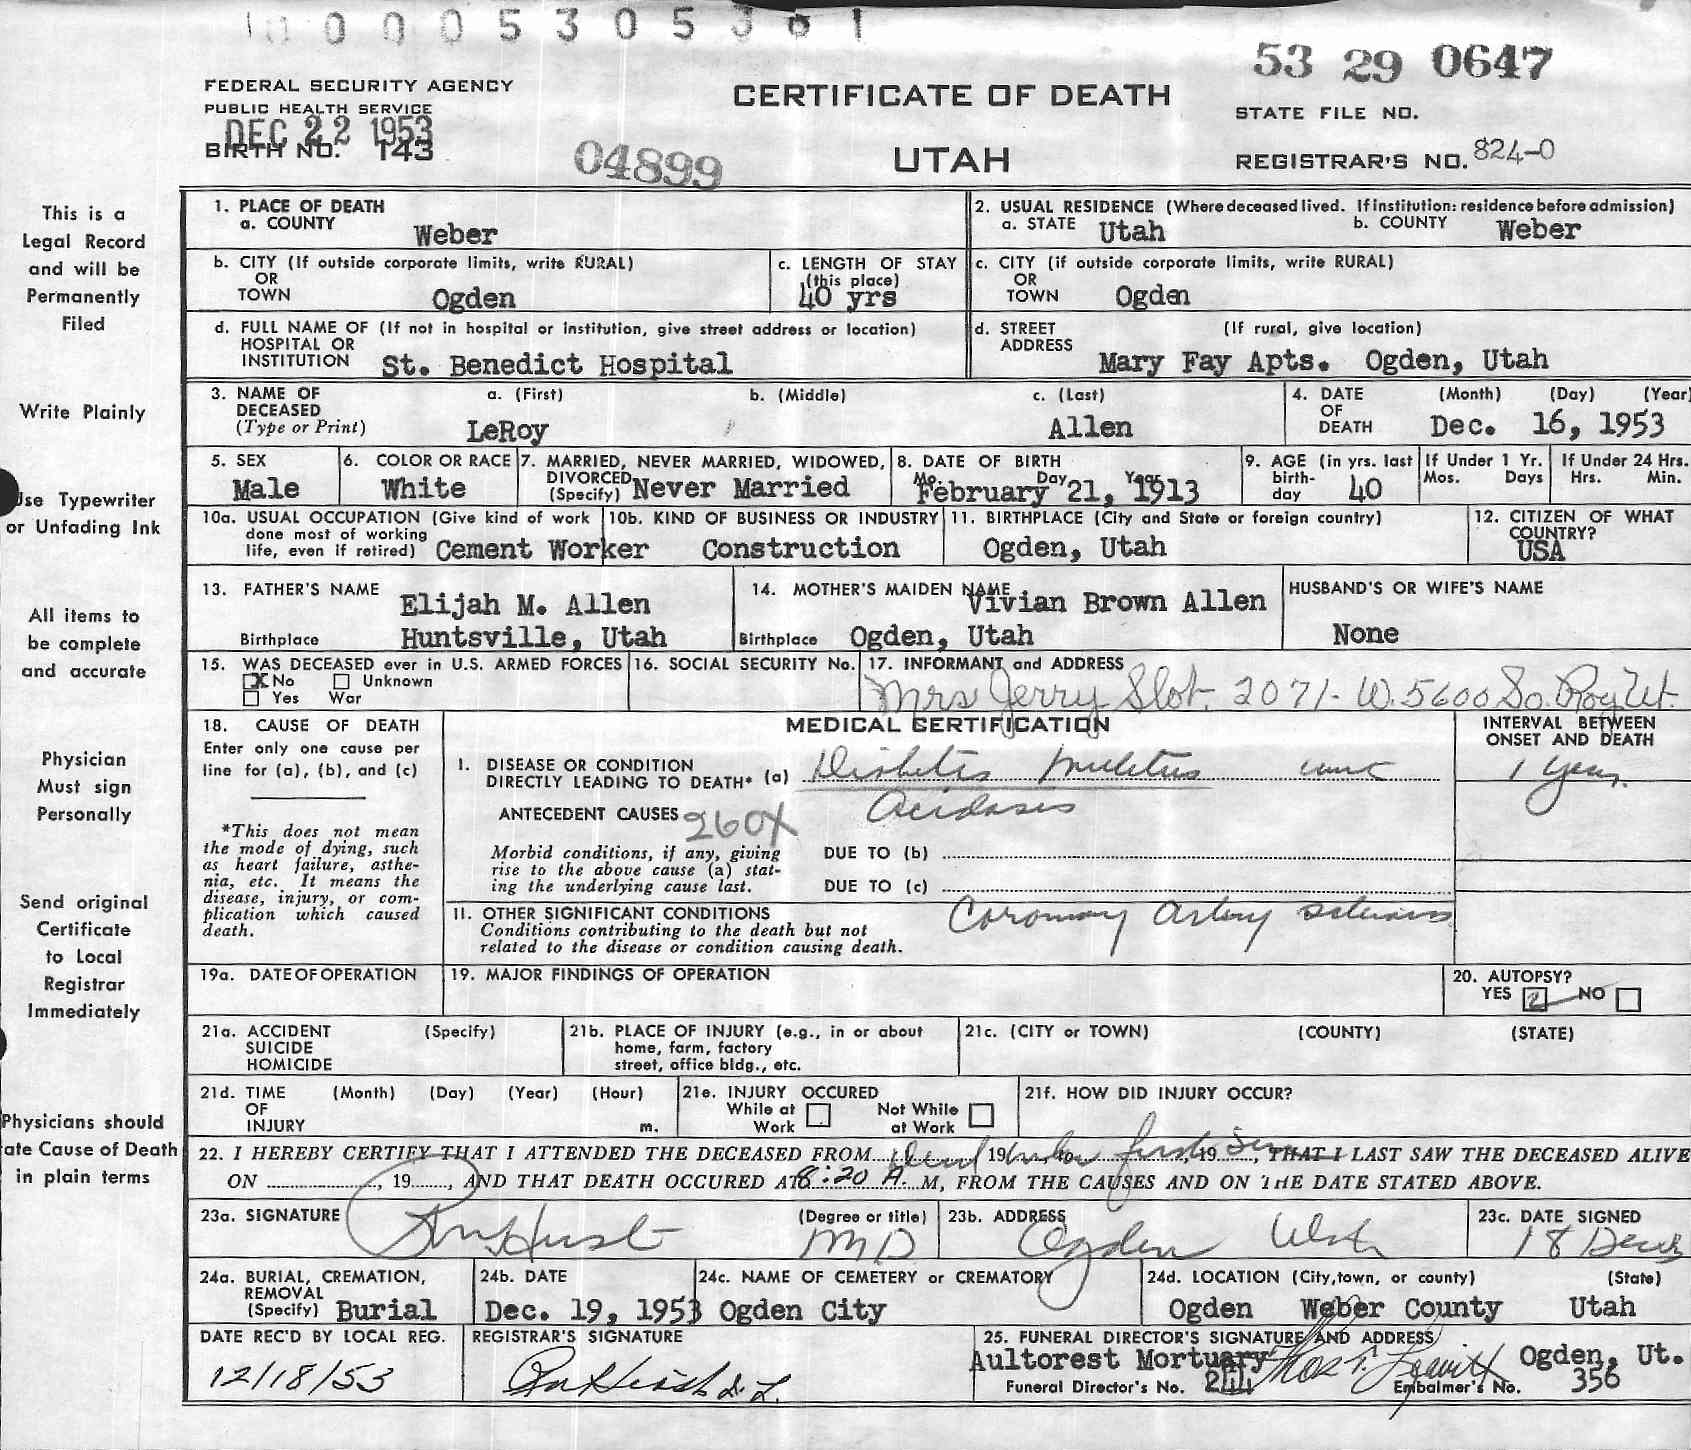 0 0 0 5 3 0 5 3 6 1
53 29 0647
FEDERAL SECURITY AGENCY
PUBLIC HEALTH SERVICE
DEC 22 1953
BIRTH NO. 143
04899
CERTIFICATE OF DEATH
UTAH
STATE FILE NO.
REGISTRAR'S NO. 824-0
This is a
Legal Record
and will be
Permanently
Filed
Write Plainly
Use Typewriter
or Unfading Ink
All items to
be complete
and accurate
Physician
Must sign
Personally
Send original
Certificate
to Local
Registrar
Immediately
Physicians should
ate Cause of Death
in plain terms
1. PLACE OF DEATH
a. COUNTY Weber
2. USUAL RESIDENCE (Where deceased lived. If institution: residence before admission)
a. STATE Utah b. COUNTY Weber
b. CITY (If outside corporate limits, write RURAL)
OR
TOWN Ogden
c. LENGTH OF STAY
(this place)
40 yrs
c. CITY (if outside corporate limits, write RURAL)
OR
TOWN Ogden
d. FULL NAME OF (If not in hospital or institution, give street address or location)
HOSPITAL OR
INSTITUTION St. Benedict Hospital
d. STREET (If rural, give location)
ADDRESS Mary Fay Apts. Ogden, Utah
3. NAME OF DECEASED
(Type or Print)
a. (First) b. (Middle) c. (Last)
LeRoy Allen
4. DATE OF DEATH (Month) (Day) (Year)
Dec. 16, 1953
5. SEX
Male
6. COLOR OR RACE
White
7. MARRIED, NEVER MARRIED, WIDOWED,
DIVORCED
(Specify) Never Married
8. DATE OF BIRTH
Mo. Day Year
February 21, 1913
9. AGE (in yrs. last
birth-
day 40
If Under 1 Yr.
Mos. Days
If Under 24 Hrs.
Hrs. Min.
10a. USUAL OCCUPATION (Give kind of work
done most of working
life, even if retired) Cement Worker
10b. KIND OF BUSINESS OR INDUSTRY
Construction
11. BIRTHPLACE (City and State or foreign country)
Ogden, Utah
12. CITIZEN OF WHAT
COUNTRY?
USA
13. FATHER'S NAME Elijah M. Allen
Birthplace Huntsville, Utah
14. MOTHER'S MAIDEN NAME Vivian Brown Allen
Birthplace Ogden, Utah
HUSBAND'S OR WIFE'S NAME
None
15. WAS DECEASED ever in U.S. ARMED FORCES
X No Unknown
Yes War
16. SOCIAL SECURITY No.
17. INFORMANT and ADDRESS
Mrs Jerry Slot. 2071- W. 5600 So. Roy Ut.
18. CAUSE OF DEATH
Enter only one cause per
line for (a), (b), and (c)
*This does not mean
the mode of dying, such
as heart failure, asthe-
nia, etc. It means the
disease, injury, or com-
plication which caused
death.
MEDICAL CERTIFICATION
INTERVAL BETWEEN
ONSET AND DEATH
I. DISEASE OR CONDITION
DIRECTLY LEADING TO DEATH* (a) Diabetis Melitus
1 year
Acidosis
ANTECEDENT CAUSES 260X
Morbid conditions, if any, giving
rise to the above cause (a) stat-
ing the underlying cause last.
DUE TO (b)
DUE TO (c)
11. OTHER SIGNIFICANT CONDITIONS
Conditions contributing to the death but not
related to the disease or condition causing death.
Coronary artery sclerosis
19a. DATE OF OPERATION
19. MAJOR FINDINGS OF OPERATION
20. AUTOPSY?
YES 2 NO
21a. ACCIDENT (Specify)
SUICIDE
HOMICIDE
21b. PLACE OF INJURY (e.g., in or about
home, farm, factory
street, office bldg., etc.
21c. (CITY or TOWN) (COUNTY) (STATE)
21d. TIME (Month) (Day) (Year) (Hour)
OF
INJURY m.
21e. INJURY OCCURED
While at Work
Not While at Work
21f. HOW DID INJURY OCCUR?
22. I HEREBY CERTIFY THAT I ATTENDED THE DECEASED FROM dead 19 when, to first, 19 seen, THAT I LAST SAW THE DECEASED ALIVE
ON , 19 , AND THAT DEATH OCCURED AT 8:20 A. M, FROM THE CAUSES AND ON THE DATE STATED ABOVE.
23a. SIGNATURE
(Degree or title)
MD
23b. ADDRESS
Ogden Utah
23c. DATE SIGNED
18 Dec
24a. BURIAL, CREMATION,
REMOVAL
(Specify) Burial
24b. DATE
Dec. 19, 1953
24c. NAME OF CEMETERY or CREMATORY
Ogden City
24d. LOCATION (City, town, or county) (State)
Ogden Weber County Utah
DATE REC'D BY LOCAL REG.
12/18/53
REGISTRAR'S SIGNATURE
25. FUNERAL DIRECTOR'S SIGNATURE AND ADDRESS
Aultorest Mortuary Thos T. Leavitt Ogden, Ut.
Funeral Director's No. 244 Embalmer's No. 356